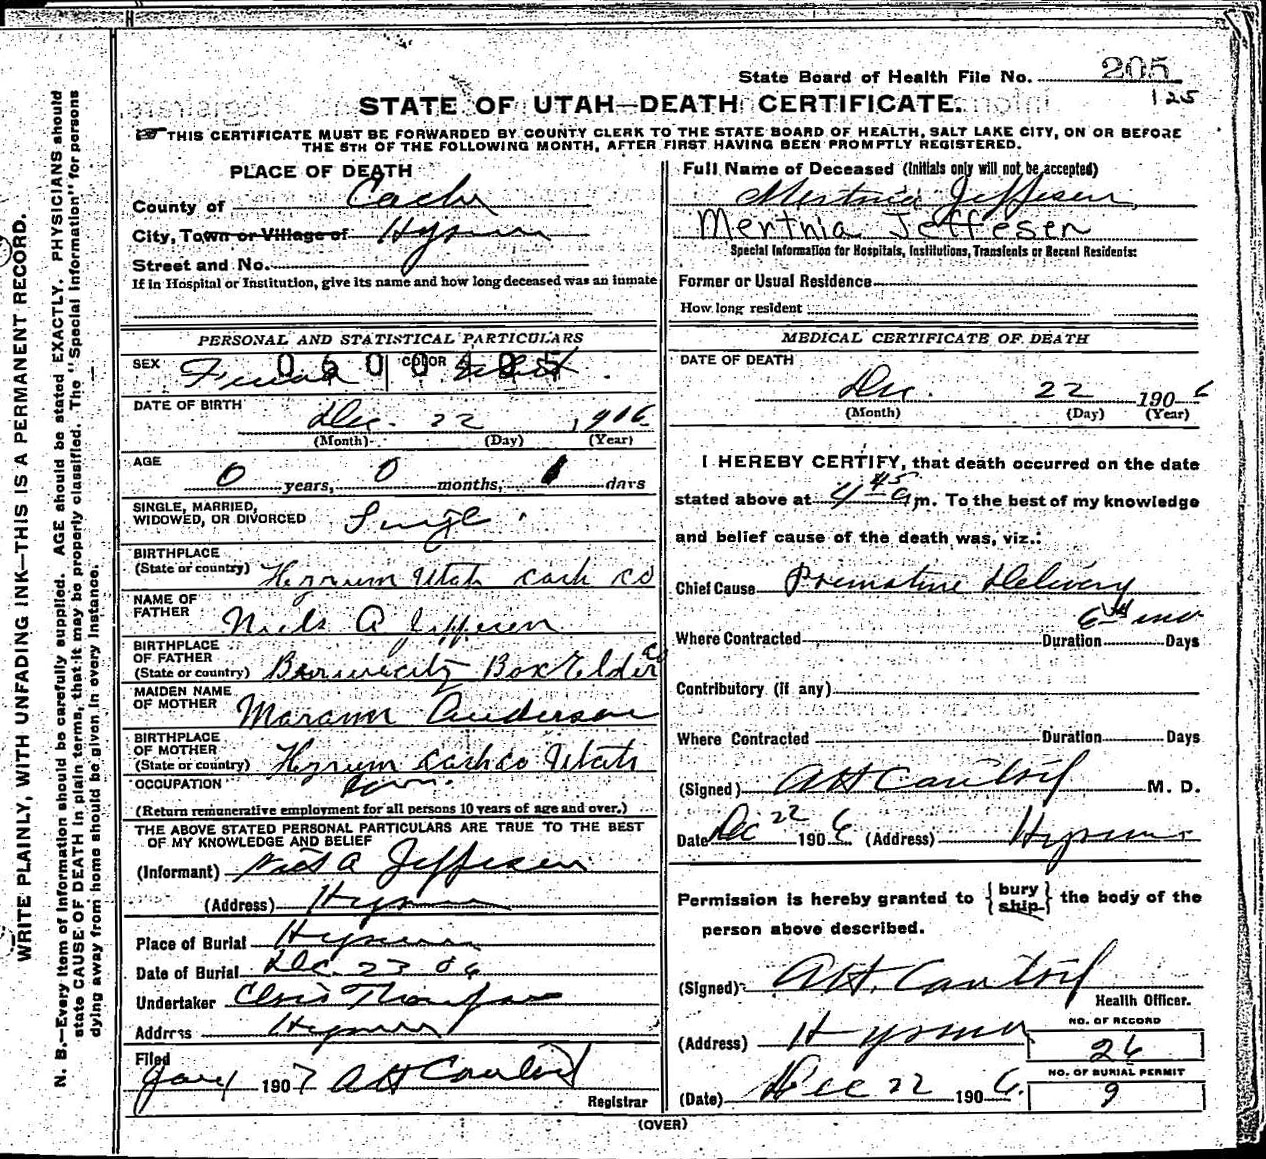 State Board of Health File No. 205
125
STATE OF UTAH—DEATH CERTIFICATE.
THIS CERTIFICATE MUST BE FORWARDED BY COUNTY CLERK TO THE STATE BOARD OF HEALTH, SALT LAKE CITY, ON OR BEFORE
THE 5TH OF THE FOLLOWING MONTH, AFTER FIRST HAVING BEEN PROMPTLY REGISTERED.
WRITE PLAINLY, WITH UNFADING INK—THIS IS A PERMANENT RECORD.
N. B.—Every item of information should be carefully supplied. AGE should be stated EXACTLY. PHYSICIANS should
state CAUSE OF DEATH in plain terms, that it may be properly classified. The "Special Information" for persons
dying away from home should be given in every instance.
PLACE OF DEATH
County of Cache
City, Town or Village of Hyrum
Street and No.
If in Hospital or Institution, give its name and how long deceased was an inmate
PERSONAL AND STATISTICAL PARTICULARS
SEX Female COLOR White
DATE OF BIRTH
Dec. 22, 1906
(Month) (Day) (Year)
AGE
0 years, 0 months, 1 days
SINGLE, MARRIED,
WIDOWED, OR DIVORCED Single
BIRTHPLACE
(State or country) Hyrum Utah Cach Co
NAME OF
FATHER Niels A Jeffesen
BIRTHPLACE
OF FATHER
(State or country) Box Elder Co
MAIDEN NAME
OF MOTHER Marann Anderson
BIRTHPLACE
OF MOTHER
(State or country) Hyrum Cach co Utah
OCCUPATION
(Return remunerative employment for all persons 10 years of age and over.)
THE ABOVE STATED PERSONAL PARTICULARS ARE TRUE TO THE BEST
OF MY KNOWLEDGE AND BELIEF
(Informant) Niels A Jeffesen
(Address) Hyrum
Place of Burial Hyrum
Date of Burial Dec. 23 06
Undertaker
Address Hyrum
Filed
Jany 1907 A H
Registrar
Full Name of Deceased (Initials only will not be accepted)
Mertnia Jeffesen
Mertnia Jeffesen
Special Information for Hospitals, Institutions, Transients or Recent Residents:
Former or Usual Residence
How long resident
MEDICAL CERTIFICATE OF DEATH
DATE OF DEATH
Dec. 22 1906
(Month) (Day) (Year)
I HEREBY CERTIFY, that death occurred on the date
stated above at 4 45 a m. To the best of my knowledge
and belief cause of the death was, viz.:
Chief Cause Premature Delivery
6 mo
Where Contracted Duration Days
Contributory (if any)
Where Contracted Duration Days
(Signed) A H M. D.
Date Dec 22 1906 (Address) Hyrum
Permission is hereby granted to { bury ship } the body of the
person above described.
(Signed) A H.
Health Officer.
(Address) Hyrum
NO. OF RECORD
26
NO. OF BURIAL PERMIT
9
(Date) Dec 22 1906.
(OVER)